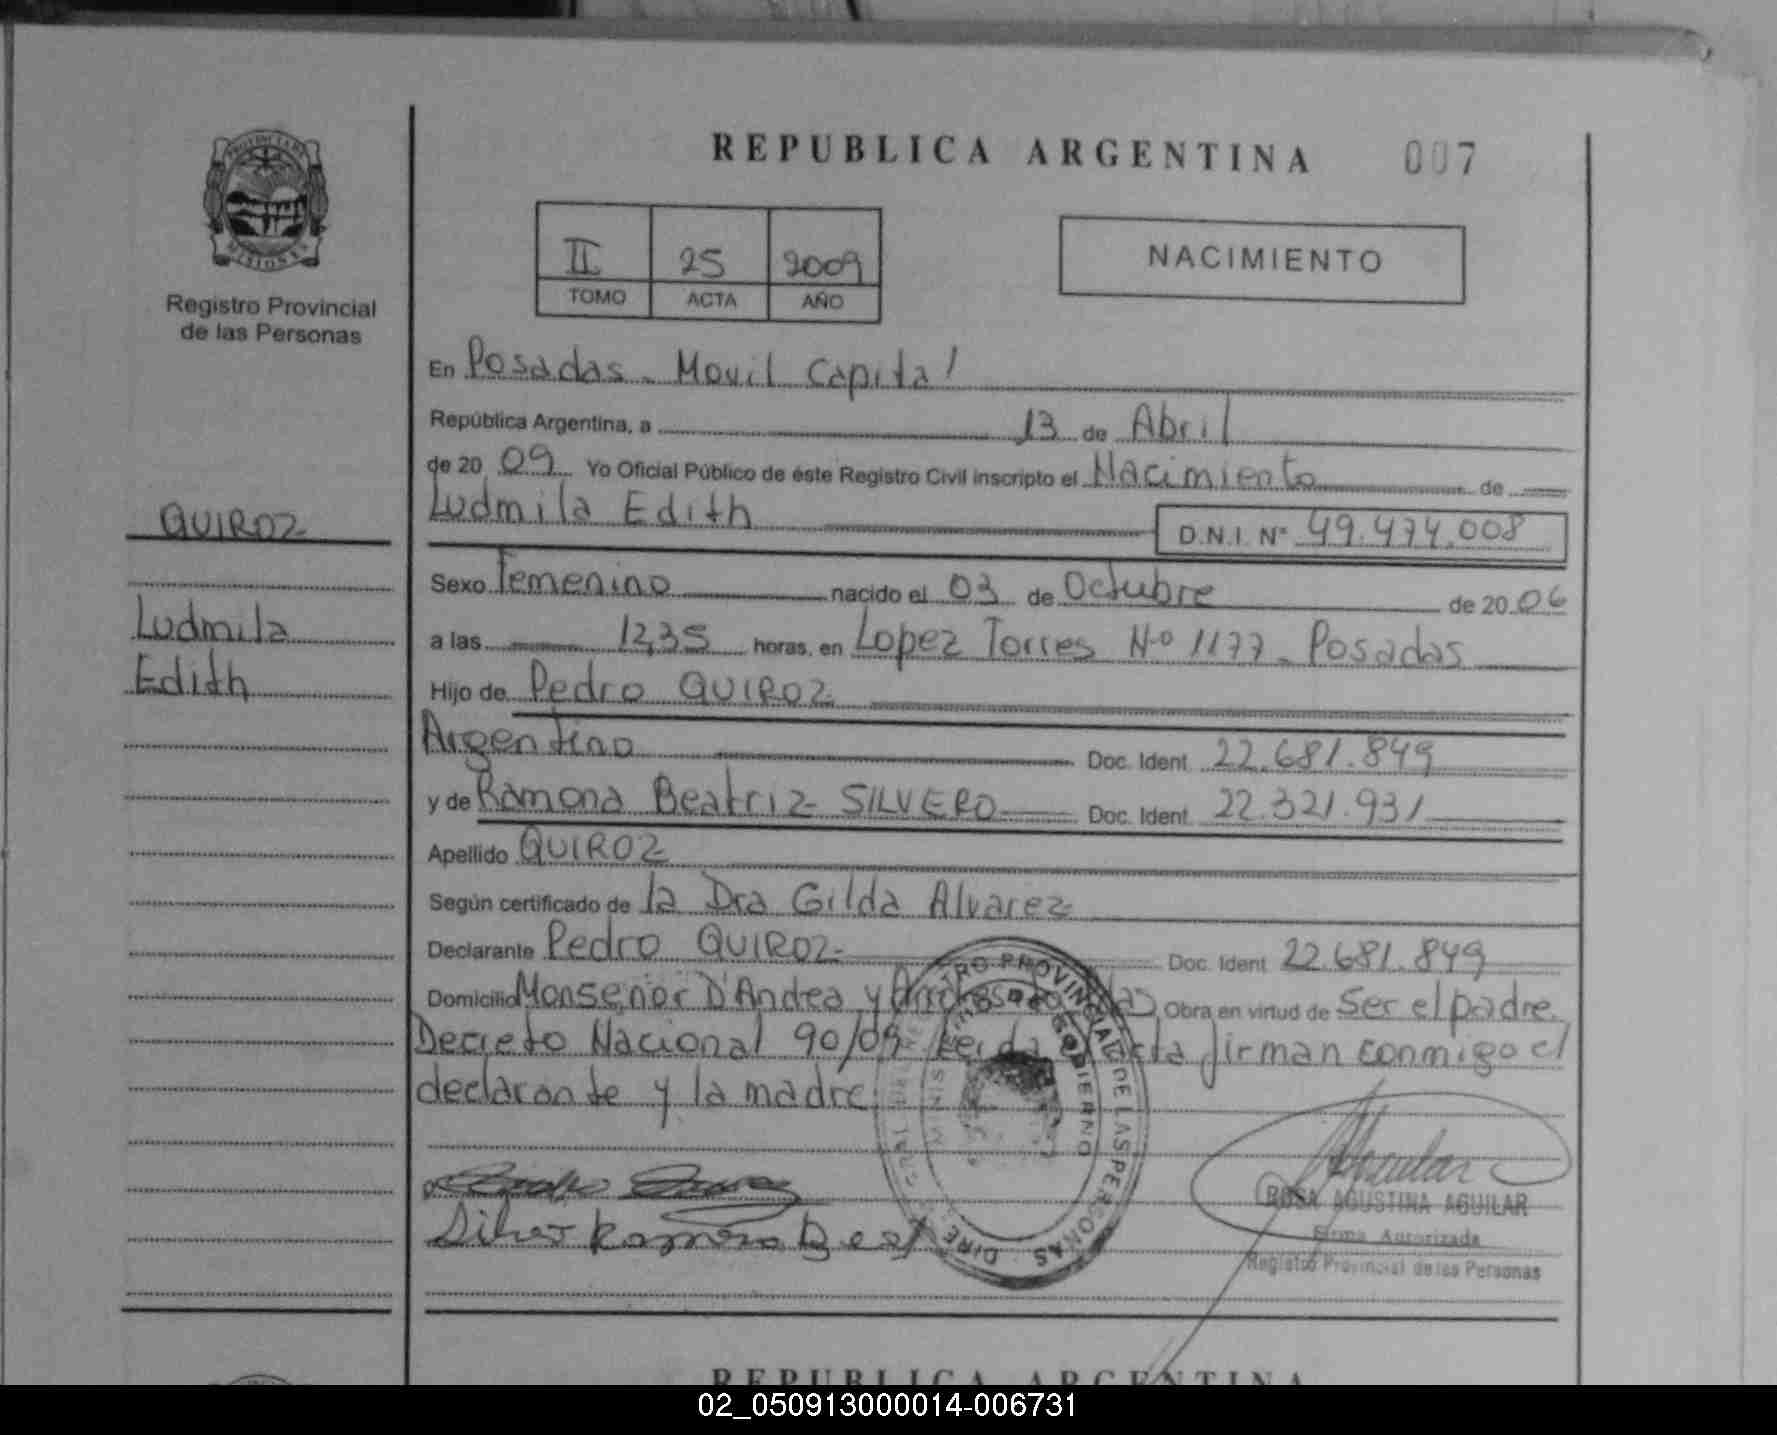 REPUBLICA ARGENTINA 007
PROVINCIA DE
MISIONES
Registro Provincial
de las Personas
II 25 2009
TOMO ACTA AÑO
NACIMIENTO
En Posadas - Movil Capital
República Argentina, a 13 de Abril
de 20 09 Yo Oficial Público de éste Registro Civil inscripto el Nacimiento de
Ludmila Edith D.N.I. Nº 49.474.008
QUIROZ
Ludmila
Edith
Sexo Femenino nacido el 03 de Octubre de 20 06
a las 12,35 horas, en Lopez Torres Nº 1177 - Posadas
Hijo de Pedro QUIROZ
Argentino Doc. Ident. 22.681.849
y de Ramona Beatriz SILVERO Doc. Ident. 22.321.931
Apellido QUIROZ
Según certificado de la Dra Gilda Alvarez
Declarante Pedro QUIROZ Doc. Ident. 22.681.849
Domicilio Monseñor D'Andea y Obra en virtud de Ser el padre.
Decreto Nacional 90/09 Leida el acta firman conmigo el
declarante y la madre
Silver Ramona Beat
ROSA AGUSTINA AGUILAR
Firma Autorizada
Registro Provincial de las Personas
REPUBLICA ARGENTINA
02_050913000014-006731